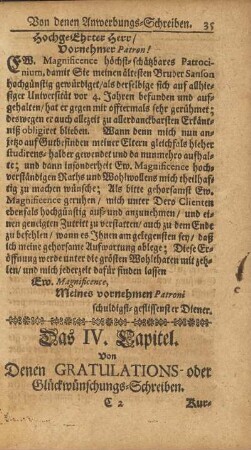 Von denen Anwerbungs-Schreiben. 35
Hochge-Ehrter Herr/
Vornehmer Patron!
EW. Magnificence höchst-schätzbares Patroci-
nium, damit Sie meinen ältesten Bruder Sanson
hochgünstig gewürdiget/ als derselbige sich auf allhie-
siger Universität vor 4. Jahren befunden und auf-
gehalten/ hat er gegen mit offtermals sehr gerühmet;
deswegen er auch allezeit zu allerdanckbarsten Erkänt-
niß obligiret blieben. Wann denn mich nun an-
jetzo auf Gutbefinden meiner Eltern gleichfals hieher
studirens-halber gewendet und da nunmehro aufhal-
te; und dann insonderheit Ew. Magnificence hoch-
verständigen Raths und Wohlwollens mich theilhaff-
tig zu machen wünsche; Als bitte gehorsamst Ew.
Magnificence geruhen/ mich unter Dero Clienten
ebenfals hochgünstig auf- und anzunehmen/ und ei-
nen geneigten Zutritt zu verstatten/ auch zu dem Ende
zu befehlen/ wann es Ihnen am gelegensten sey/ daß
ich meine gehorsame Aufwartung ablege; Diese Er-
öffnung werde unter die grösten Wohlthaten mit zeh-
len/ und mich jederzeit dafür finden lassen
Ew. Magnificence,
Meines vornehmen Patroni
schuldigst-geflissenster Diener.
Das IV. Capitel.
Von
Denen GRATULATIONS- oder
Glückwünschungs-Schreiben.
C 2 Kur-